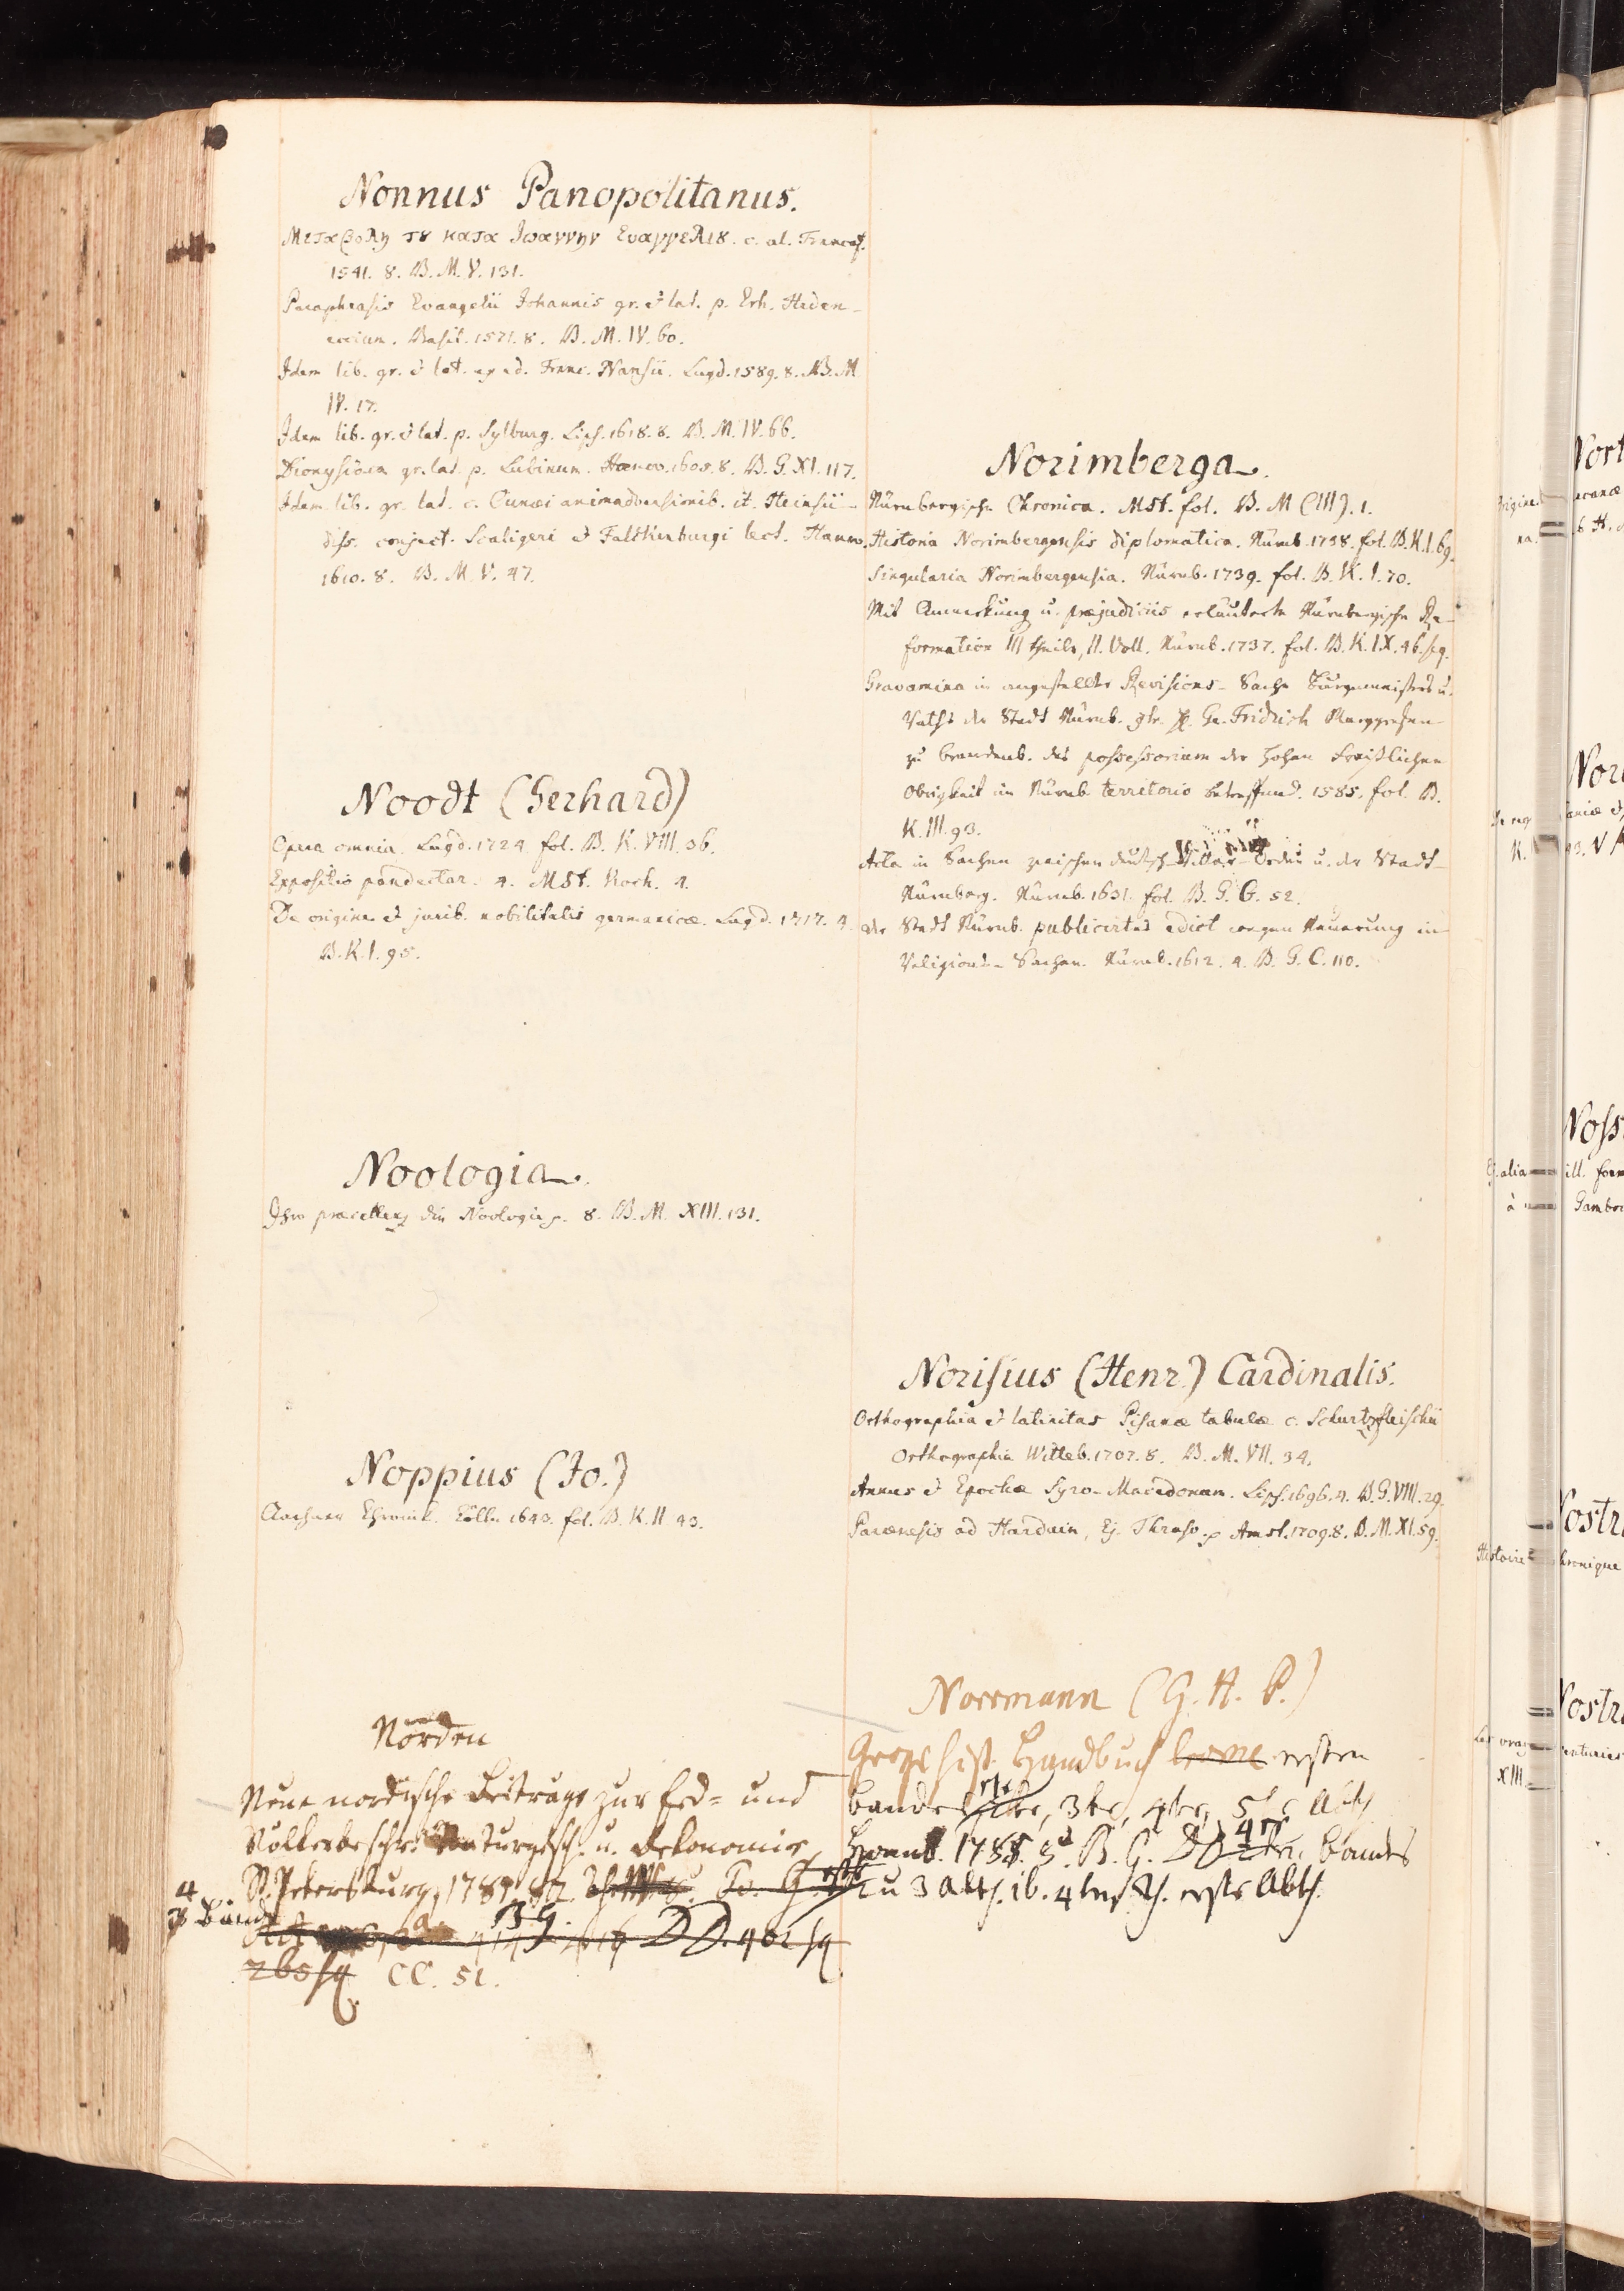 Nonnus Panopolitanus.
Μεταβολη τȣ κατα Ιωαννην Ευαγγελιȣ. c. al. Francof.
1541. 8. B. M. V. 131.
Paraphrasis Evangelii Johannis gr. et lat. p. Erh. Heden-
eccium. Basil. 1571. 8. B. M. IV. 60.
Idem lib. gr. et lat. ex ed. Franc. Nansii. Lugd. 1589. 8. B. M.
IV. 17.
Idem lib. gr. et lat. p. Sylburg. Lips. 1618. 8. B. M. IV. 66.
Dionysiaca gr. lat. p. Lubinum. Hanov. 1605. 8. B. G. XI. 117.
Idem lib. gr. lat. c. Cunæi animadversionib. it. Heinsii
diss. conject. Scaligeri et Falckenburgi lect. Hanov.
1610. 8. B. M. V. 47.
Noodt (Gerhard)
Opera omnia. Lugd. 1724. fol. B. K. VIII. 36.
Expositio pandectar. 4. MSt. Koch. 4.
De origine et jurib. nobilitatis germanicæ. Lugd. 1717. 4.
B. K. I. 95.
Noologia.
die Noologie p. 8. B. M. XIII. 131.
Noppius (Jo.)
Aachner Chronick. Cölln 1643. fol. B. K. II. 43.
Norden
Neue nordische Beiträge zur Erd- und
Völkerbeschr. Naturgesch. u. Oekonomie,
St. Petersburg, 1781
4 Bände
B G. DD. 402 sq
265 sq CC. 51.
Norimberga.
Nürnbergische Chronica. MSt. fol. B. M (III). 1.
Historia Norimbergensis diplomatica. Nürnb. 1738. fol. B. K. I. 69.
Singularia Norimbergensia. Nürnb. 1739. fol. B. K. I. 70.
Mit Anmerkung u. præjudiciis erläuterte Nürnbergische Re-
formation III theile, II. Voll. Nürnb. 1737. fol. B. K. IX. 46. sq.
Gravamina in angestellter Revisions-Sache Burgermeisters u.
Raths der Stadt Nürnb. Ge. Fridrich Marggrafen
zu Brandenb. das possessorium der hohen fraißlichen
Obrigkeit im Nürnb. territorio betreffend. 1585. fol. B.
K. III. 93.
Acta in Sachen zwischen deutsch-Ritter-Orden u. der Stadt
Nürnberg. Nürnb. 1631. fol. B. G. G. 52.
der Stadt Nürnb. publicirtes edict wegen Neuerung in
Religions-Sachen. Nürnb. 1612. 4. B. G. C. 110.
Norisius (Henr.) Cardinalis.
Orthographia et latinitas Pisanæ tabulæ c. Schurtzfleischii
Orthographia Witteb. 1707. 8. B. M. VII. 34.
Annus et Epochæ Syro-Macedonum. Lips. 1696. 4. B. G. VIII. 29.
Parænesis ad Harduin, Ej. Thraso p. Amst. 1709. 8. B. M. XI. 59.
Norrmann (G. H. P.)
Geogr. hist. Handbuch ersten
bandes 3te, 4te, 5te Abth
Hamb. 1785. 8. B. G. DD 4ten bandes
2 u 3 Abth. ib. 4ten Th. erste Abth.